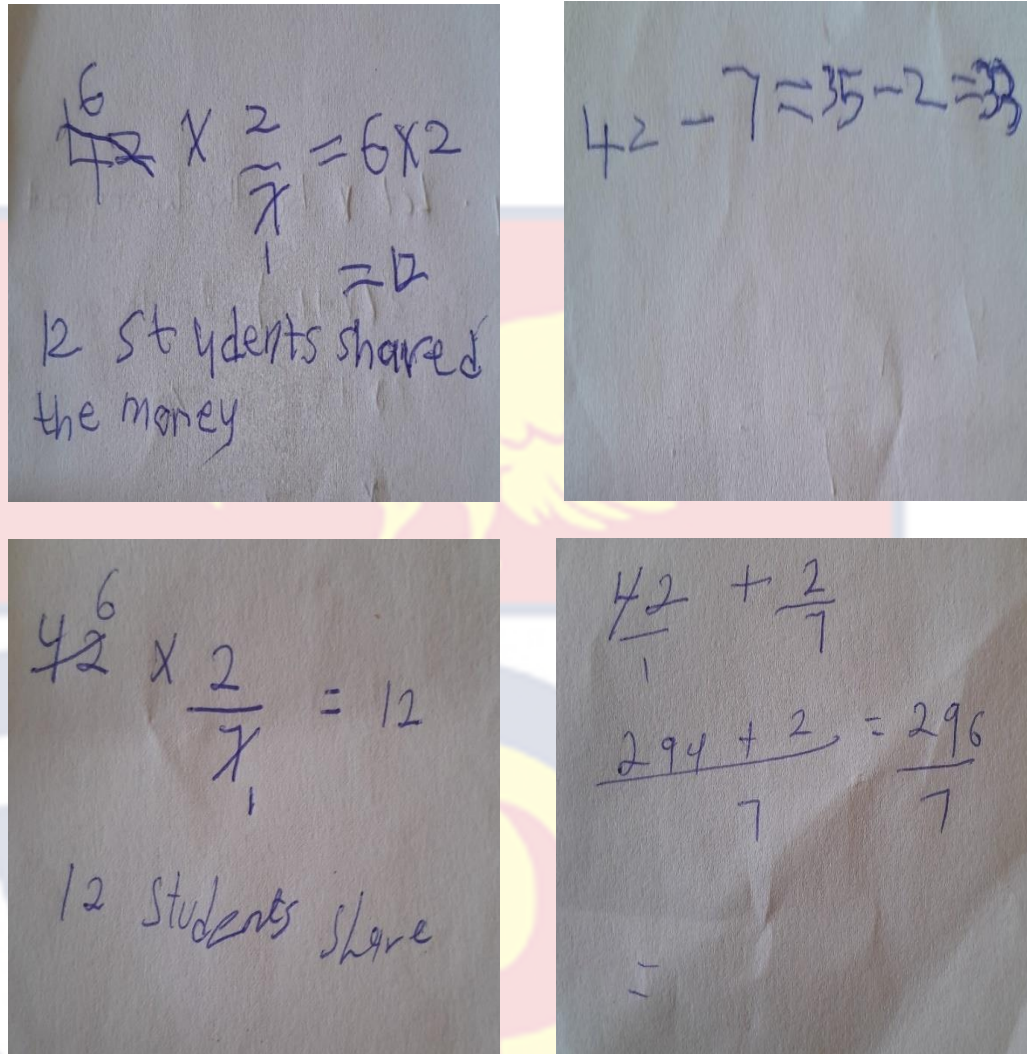 6
42 × 2/7 = 6×2
1
= 12
12 Students shared
the money
42 - 7 = 35 - 2 = 33
6
42 × 2/7 = 12
1
12 students share
42/1 + 2/7
294 + 2/7 = 296/7
=